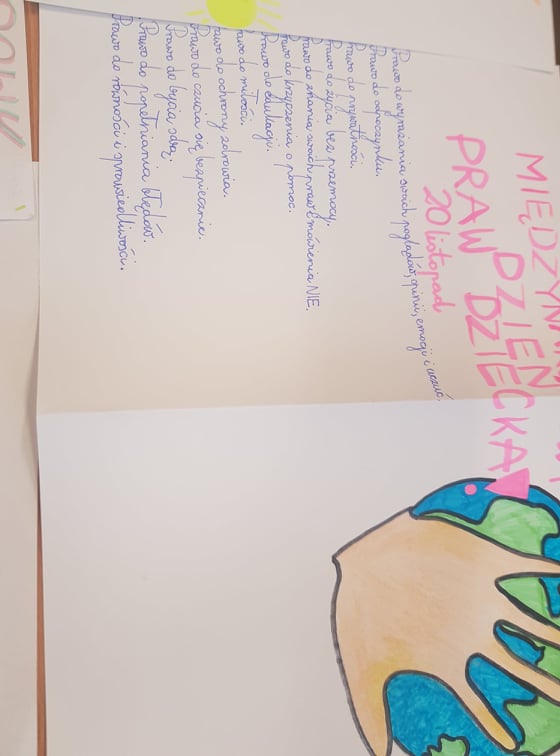 MIĘDZYNAR
DZIEŃ
PRAW DZIECKA
20 listopad
Prawo do wyrażania swoich poglądów, opinii, emocji i uczuć.
Prawo do odpoczynku.
Prawo do prywatności.
Prawo do życia bez przemocy.
Prawo do znania swoich praw i mówienia NIE.
Prawo do krzyczenia o pomoc.
Prawo do edukacji.
Prawo do miłości.
Prawo do ochrony zdrowia.
Prawo do czucia się bezpiecznie.
Prawo do bycia sobą.
Prawo do popełniania błędów.
Prawo do równości i sprawiedliwości.